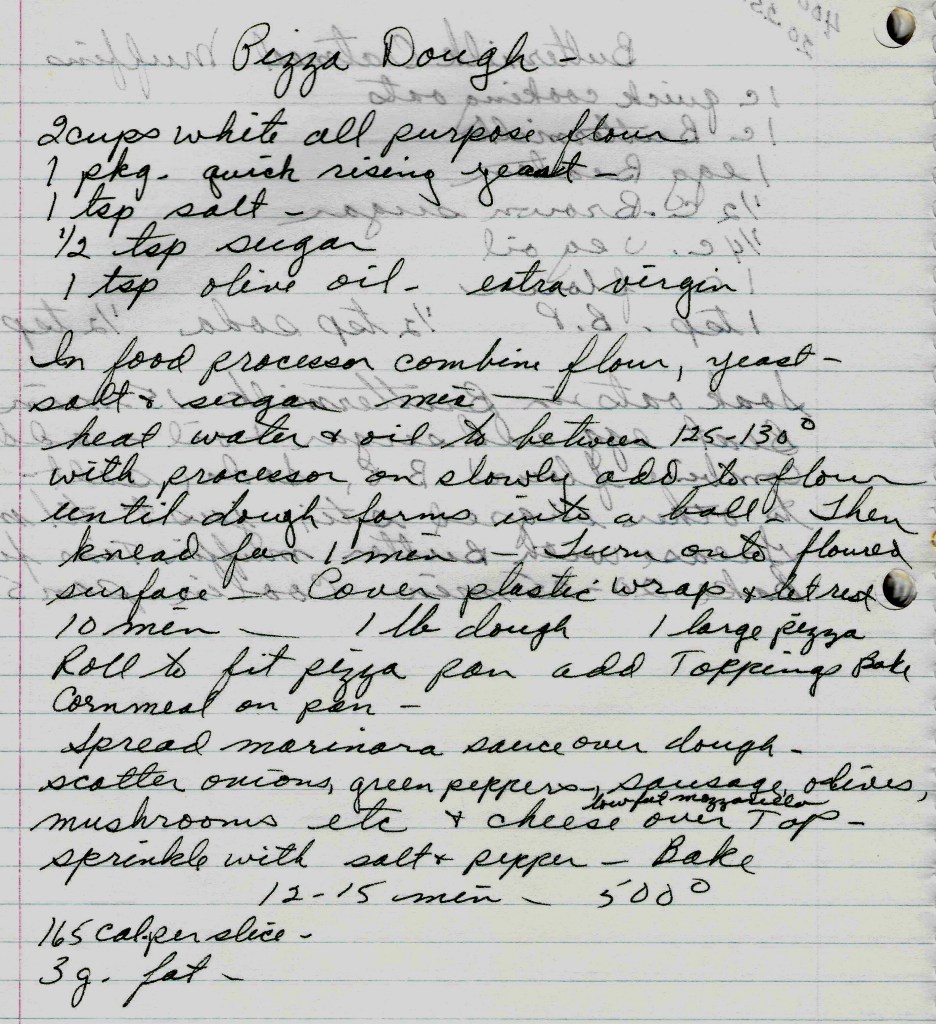 Pizza Dough -
2 cups white all purpose flour
1 pkg. quick rising yeast -
1 tsp salt -
1/2 tsp sugar
1 tsp olive oil - extra virgin
In food processor combine flour, yeast -
salt & sugar mix -
heat water & oil to between 125-130°
with processor on slowly add to flour
until dough forms into a ball - Then
knead for 1 min - Turn onto floured
surface - Cover plastic wrap & let rest
10 min - 1 lb dough 1 large pizza
Roll to fit pizza pan add Toppings Bake
Cornmeal on pan -
Spread marinara sauce over dough -
scatter onions, green peppers, sausage, olives,
low fat mozzarella
mushrooms etc & cheese over Top -
sprinkle with salt & pepper - Bake
12-15 min - 500°
165 cal. per slice -
3 g. fat -